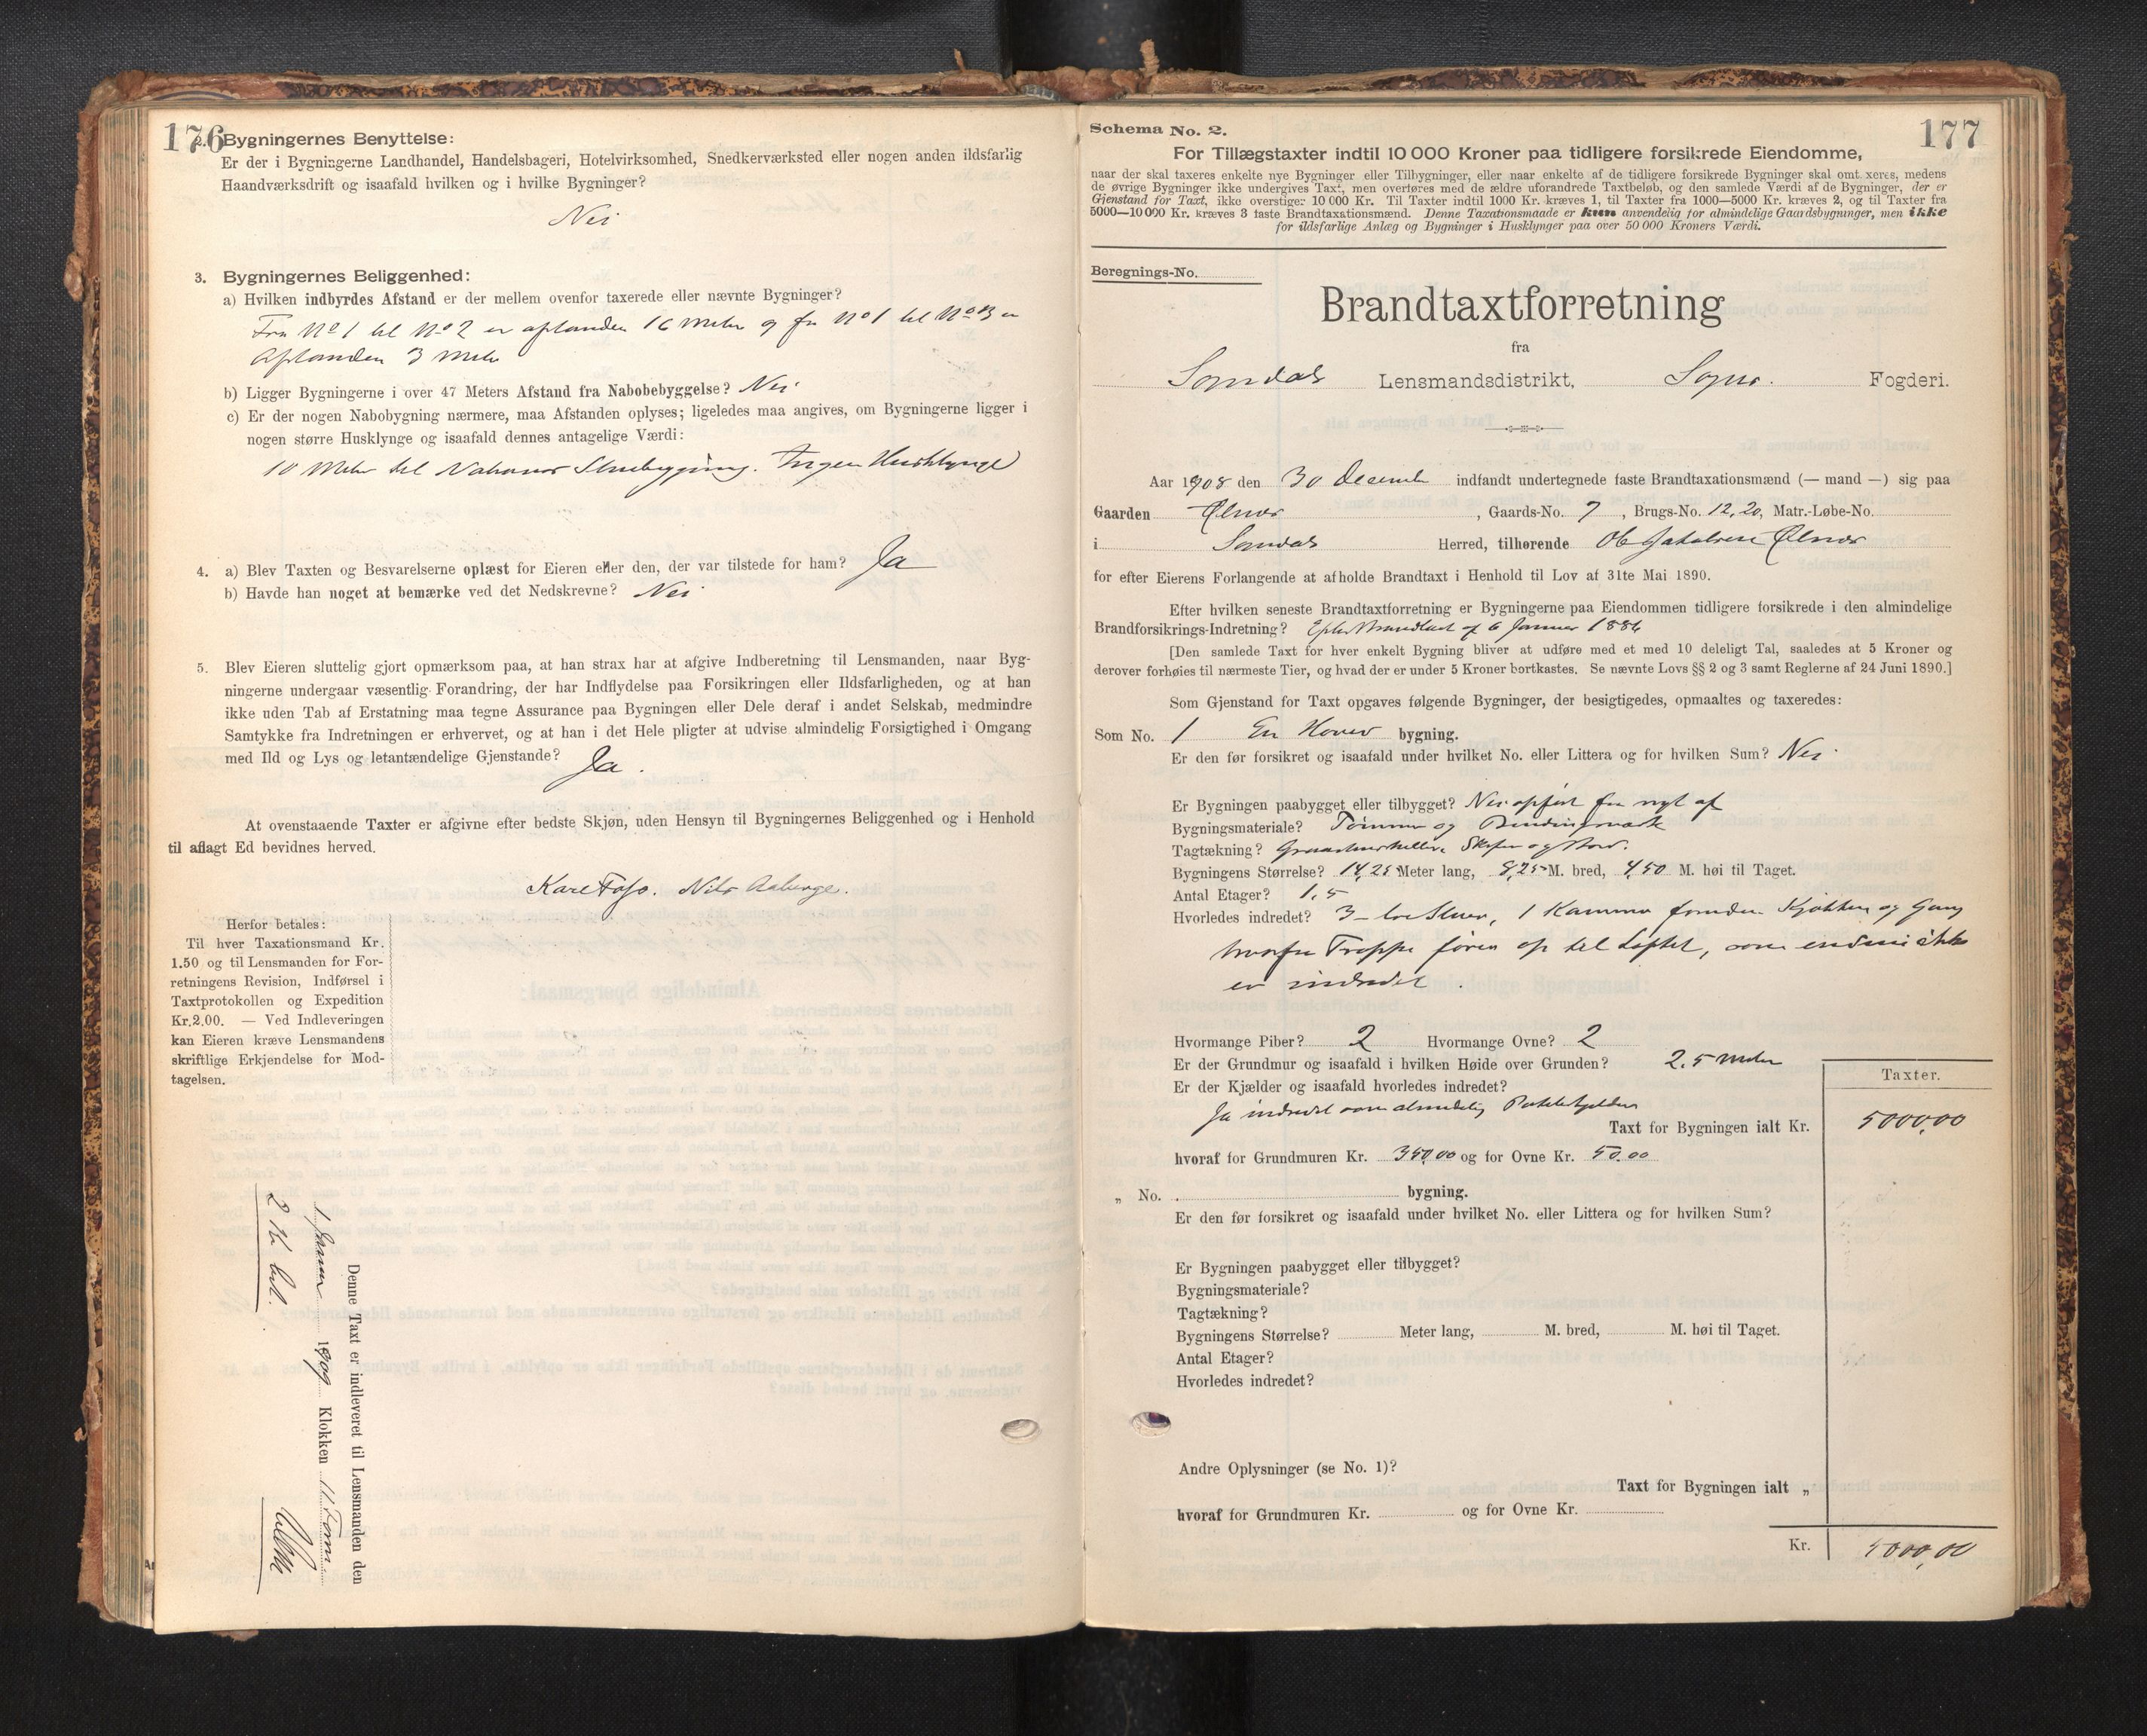 176
2. Bygningernes Benyttelse:
Er der i Bygningerne Landhandel, Handelsbageri, Hotelvirksomhed, Snedkerværksted eller nogen anden ildsfarlig
Haandværksdrift og isaafald hvilken og i hvilke Bygninger?
Nei
3. Bygningernes Beliggenhed:
a) Hvilken indbyrdes Afstand er der mellem ovenfor taxerede eller nævnte Bygninger?
Fra No 1 til No 2 er afstanden 16 Meter og fra No 1 til No 3 er
Afstanden 3 Meter
b) Ligger Bygningerne i over 47 Meters Afstand fra Nabobebyggelse? Nei
c) Er der nogen Nabobygning nærmere, maa Afstanden oplyses; ligeledes maa angives, om Bygningerne ligger i
nogen større Husklynge og isaafald dennes antagelige Værdi:
10 Meter til Naboens Stuebygning. Ingen Husklynge
4. a) Blev Taxten og Besvarelserne oplæst for Eieren eller den, der var tilstede for ham? Ja
b) Havde han noget at bemærke ved det Nedskrevne? Nei
5. Blev Eieren sluttelig gjort opmærksom paa, at han strax har at afgive Indberetning til Lensmanden, naar Byg-
ningerne undergaar væsentlig Forandring, der har Indflydelse paa Forsikringen eller Ildsfarligheden, og at han
ikke uden Tab af Erstatning maa tegne Assurance paa Bygningen eller Dele deraf i andet Selskab, medmindre
Samtykke fra Indretningen er erhvervet, og at han i det Hele pligter at udvise almindelig Forsigtighed i Omgang
med Ild og Lys og letantændelige Gjenstande? Ja.
At ovenstaaende Taxter er afgivne efter bedste Skjøn, uden Hensyn til Bygningernes Beliggenhed og i Henhold
til aflagt Ed bevidnes herved.
Kare Foss. Nils Aaberge.
Herfor betales:
Til hver Taxationsmand Kr.
1.50 og til Lensmanden for For-
retningens Revision, Indførsel i
Taxtprotokollen og Expedition
Kr. 2.00. — Ved Indleveringen
kan Eieren kræve Lensmandens
skriftlige Erkjendelse for Mod-
tagelsen.
Denne Taxt er indleveret til Lensmanden den
1 Januar 1909 Klokken 11 Form
177
Schema No. 2.
For Tillægstaxter indtil 10 000 Kroner paa tidligere forsikrede Eiendomme,
naar der skal taxeres enkelte nye Bygninger eller Tilbygninger, eller naar enkelte af de tidligere forsikrede Bygninger skal omtaxeres, medens
de øvrige Bygninger ikke undergives Taxt, men overføres med de ældre uforandrede Taxtbeløb, og den samlede Værdi af de Bygninger, der er
Gjenstand for Taxt, ikke overstiger 10 000 Kr. Til Taxter indtil 1000 Kr. kræves 1, til Taxter fra 1000—5000 Kr. kræves 2, og til Taxter fra
5000—10 000 Kr. kræves 3 faste Brandtaxationsmænd. Denne Taxationsmaade er kun anvendelig for almindelige Gaardsbygninger, men ikke
for ildsfarlige Anlæg og Bygninger i Husklynger paa over 50 000 Kroners Værdi.
Beregnings-No.
Brandtaxtforretning
fra
Sogndals Lensmandsdistrikt, Sogns. Fogderi.
Aar 1908 den 30 December indfandt undertegnede faste Brandtaxationsmænd (— mand —) sig paa
Gaarden Ølnes, Gaards-No. 7, Brugs-No. 12, 20, Matr.-Løbe-No.
i Sogndals Herred, tilhørende Ole Jakobsen Ølnes
for efter Eierens Forlangende at afholde Brandtaxt i Henhold til Lov af 31te Mai 1890.
Efter hvilken seneste Brandtaxtforretning er Bygningerne paa Eiendommen tidligere forsikrede i den almindelige
Brandforsikrings-Indretning? Efter Brandtaxt af 6 Januar 1886
[Den samlede Taxt for hver enkelt Bygning bliver at udføre med et med 10 deleligt Tal, saaledes at 5 Kroner og
derover forhøies til nærmeste Tier, og hvad der er under 5 Kroner bortkastes. Se nævnte Lovs §§ 2 og 3 samt Reglerne af 24 Juni 1890.]
Som Gjenstand for Taxt opgaves følgende Bygninger, der besigtigedes, opmaaltes og taxeredes:
Som No. 1 En Hoved bygning.
Er den før forsikret og isaafald under hvilket No. eller Littera og for hvilken Sum? Nei
Er Bygningen paabygget eller tilbygget? Nei opført fra nyt af
Bygningsmateriale? Tømmer og Bindingsværk
Tagtækning? Graastenheller, Skifer og Bord.
Bygningens Størrelse? 14,25 Meter lang, 8,25 M. bred, 4,50 M. høi til Taget.
Antal Etager? 1,5
Hvorledes indredet? 3-tre Stuer, 1 Kammer foruden Kjøkken og Gang
hvorfra Trappe fører op til Loftet, som endnu ikke
er indredet.
Hvormange Piber? 2 Hvormange Ovne? 2
Er der Grundmur og isaafald i hvilken Høide over Grunden? 2.5 Meter
Er der Kjælder og isaafald hvorledes indredet?
Ja indredet som almindelig Potetkjelder
Taxter.
Taxt for Bygningen ialt Kr. 5000,00
hvoraf for Grundmuren Kr. 350,00 og for Ovne Kr. 50.00
„ No. bygning.
Er den før forsikret og isaafald under hvilket No. eller Littera og for hvilken Sum?
Er Bygningen paabygget eller tilbygget?
Bygningsmateriale?
Tagtækning?
Bygningens Størrelse? Meter lang, M. bred, M. høi til Taget.
Antal Etager?
Hvorledes indredet?
Andre Oplysninger (se No. 1)?
Taxt for Bygningen ialt „
hvoraf for Grundmuren Kr. og for Ovne Kr.
Kr. 5000,00